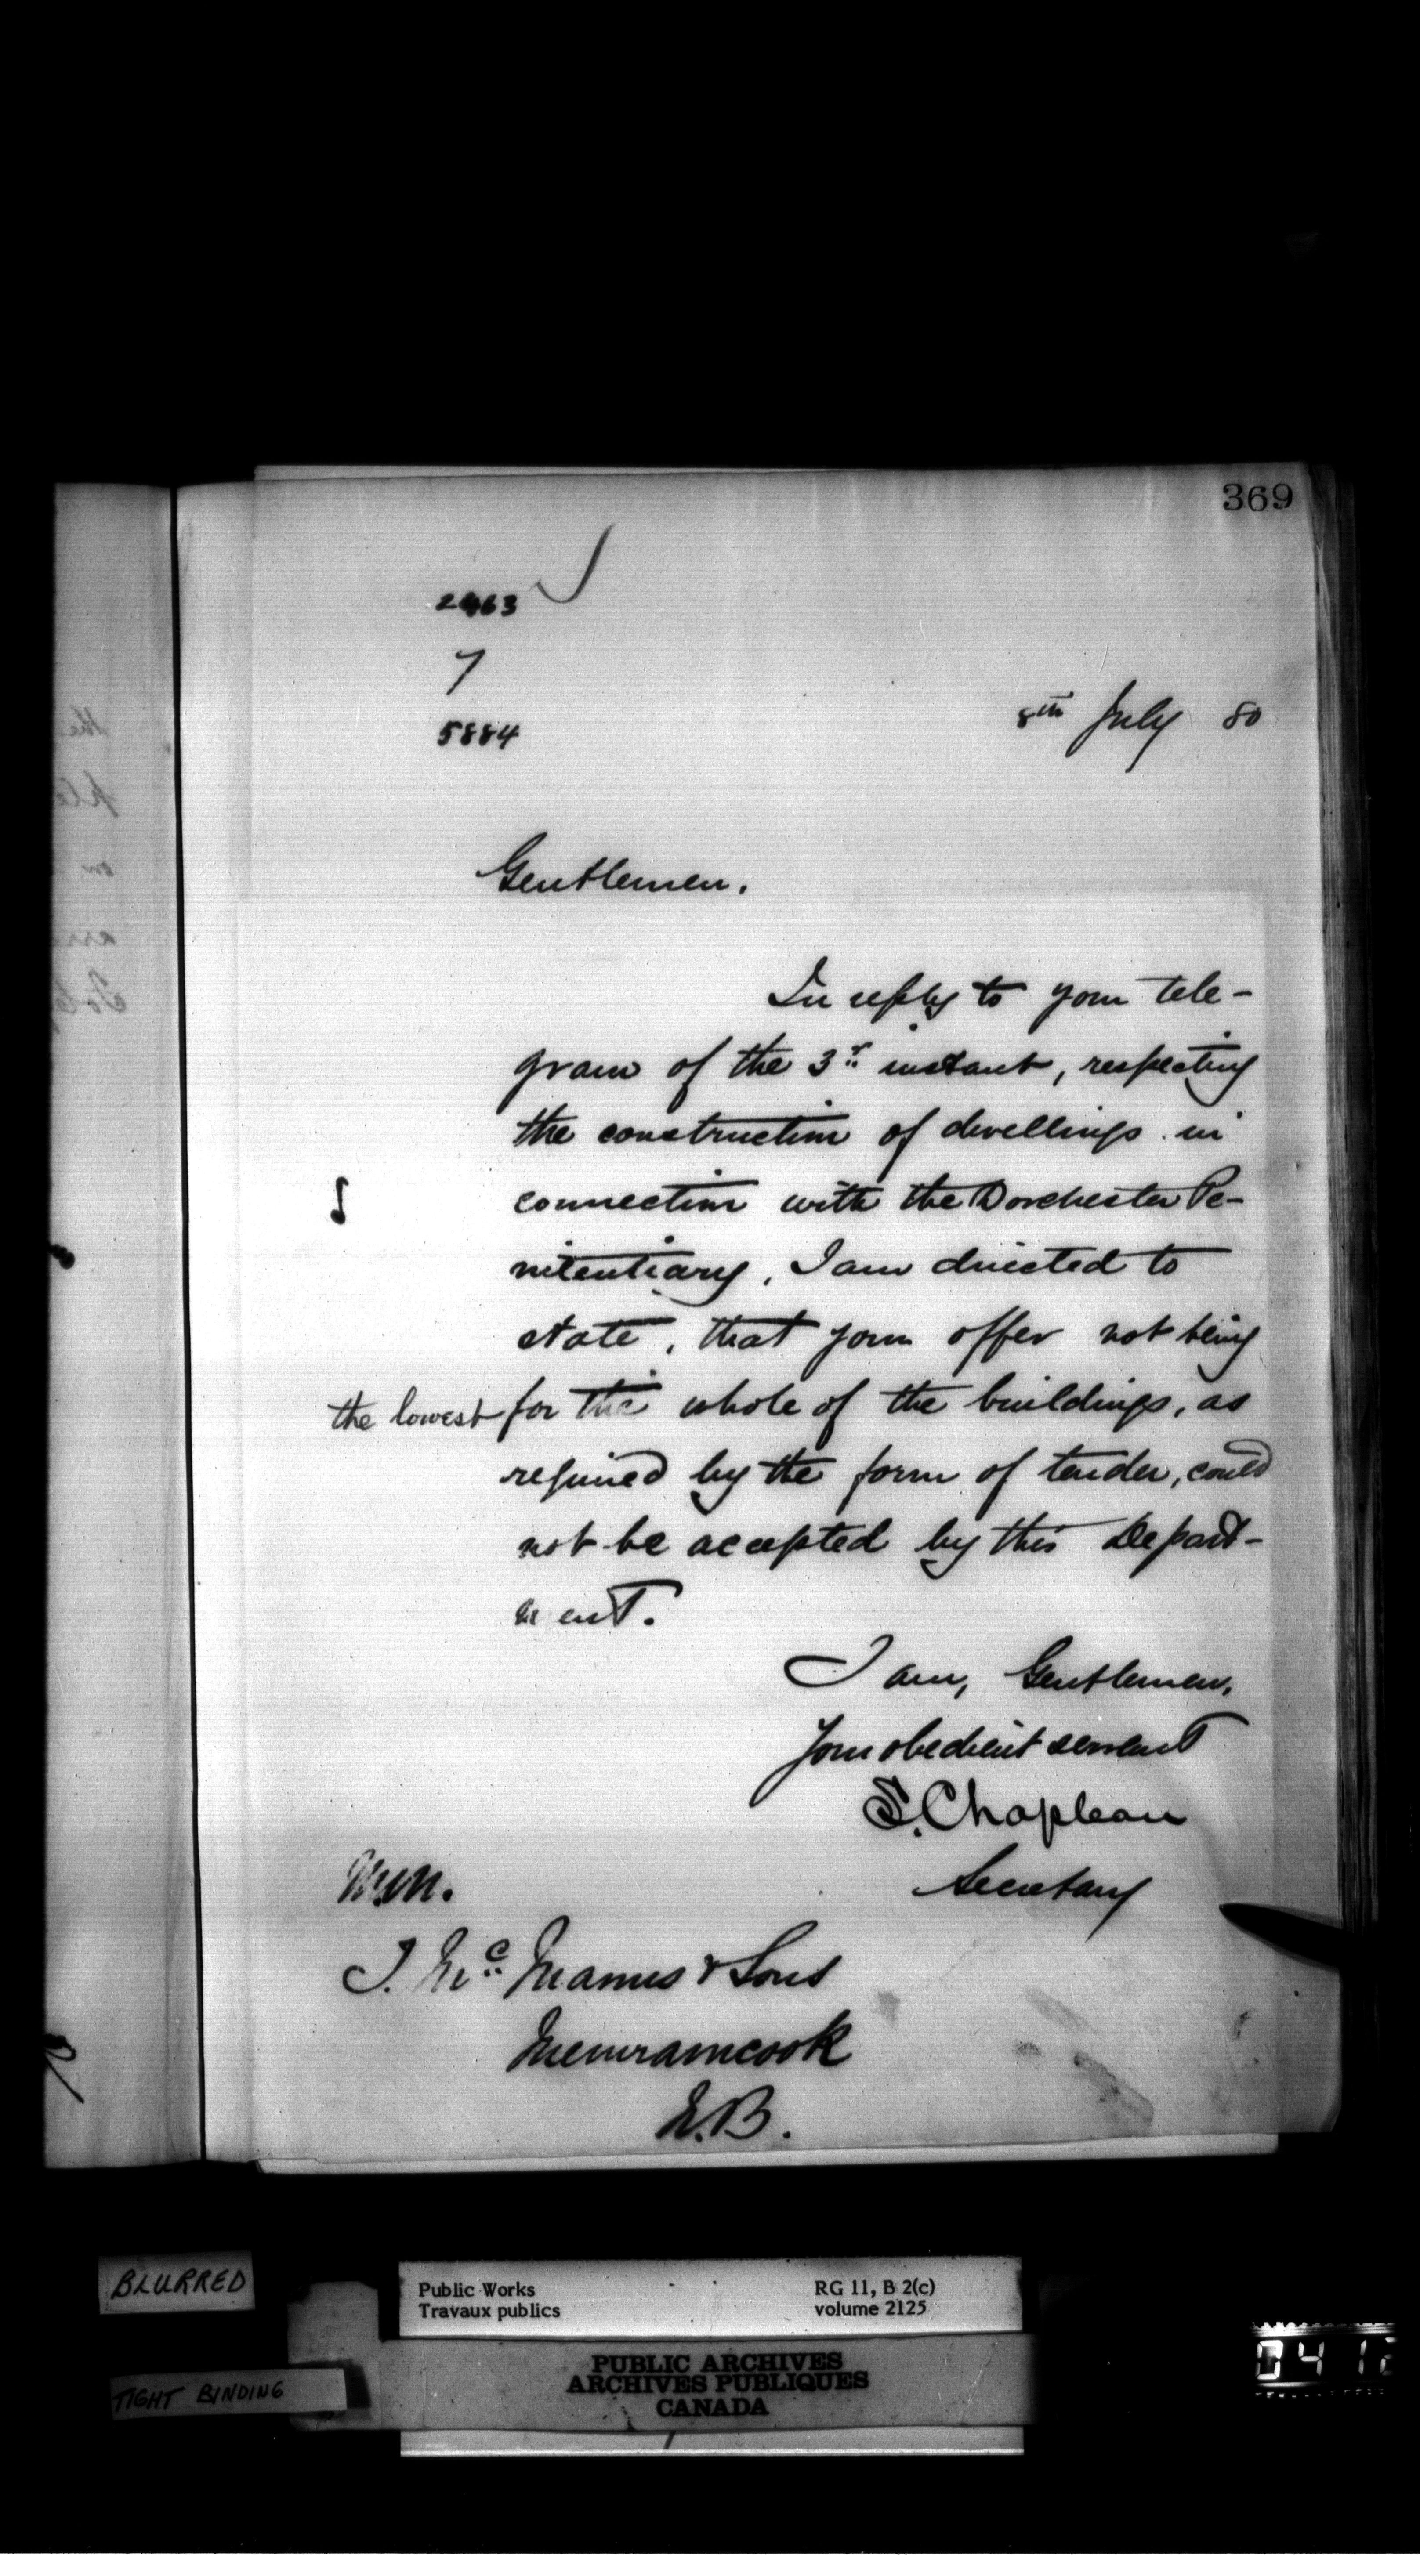 369
2963
7
5884
8th July 80
Gentlemen.
In reply to your tele-
gram of the 3r instant, respecting
the construction of dwellings in
connection with the Dorchester Pe-
nitentiary, I am directed to
state, that your offer not being
the lowest for the whole of the buildings, as
required by the form of tender, could
not be accepted by this Depart-
ment.
I am, Gentlemen,
Your obedient servant
S. Chapleau
Secretary
J. Mc Manus & Sons
Memramcook
N.B.
BLURRED
TIGHT BINDING
Public Works
Travaux publics
RG 11, B 2(c)
volume 2125
PUBLIC ARCHIVES
ARCHIVES PUBLIQUES
CANADA